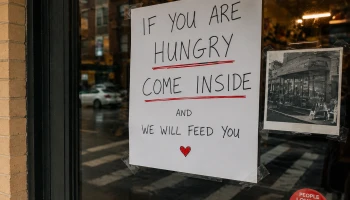 IF YOU ARE
HUNGRY
COME INSIDE
AND
WE WILL FEED YOU
PEOPLE